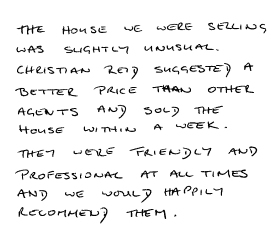 THE HOUSE WE WERE SELLING
WAS SLIGHTLY UNUSUAL.
CHRISTIAN REID SUGGESTED A
BETTER PRICE THAN OTHER
AGENTS AND SOLD THE
HOUSE WITHIN A WEEK.
THEY WERE FRIENDLY AND
PROFESSIONAL AT ALL TIMES
AND WE WOULD HAPPILY
RECOMMEND THEM.